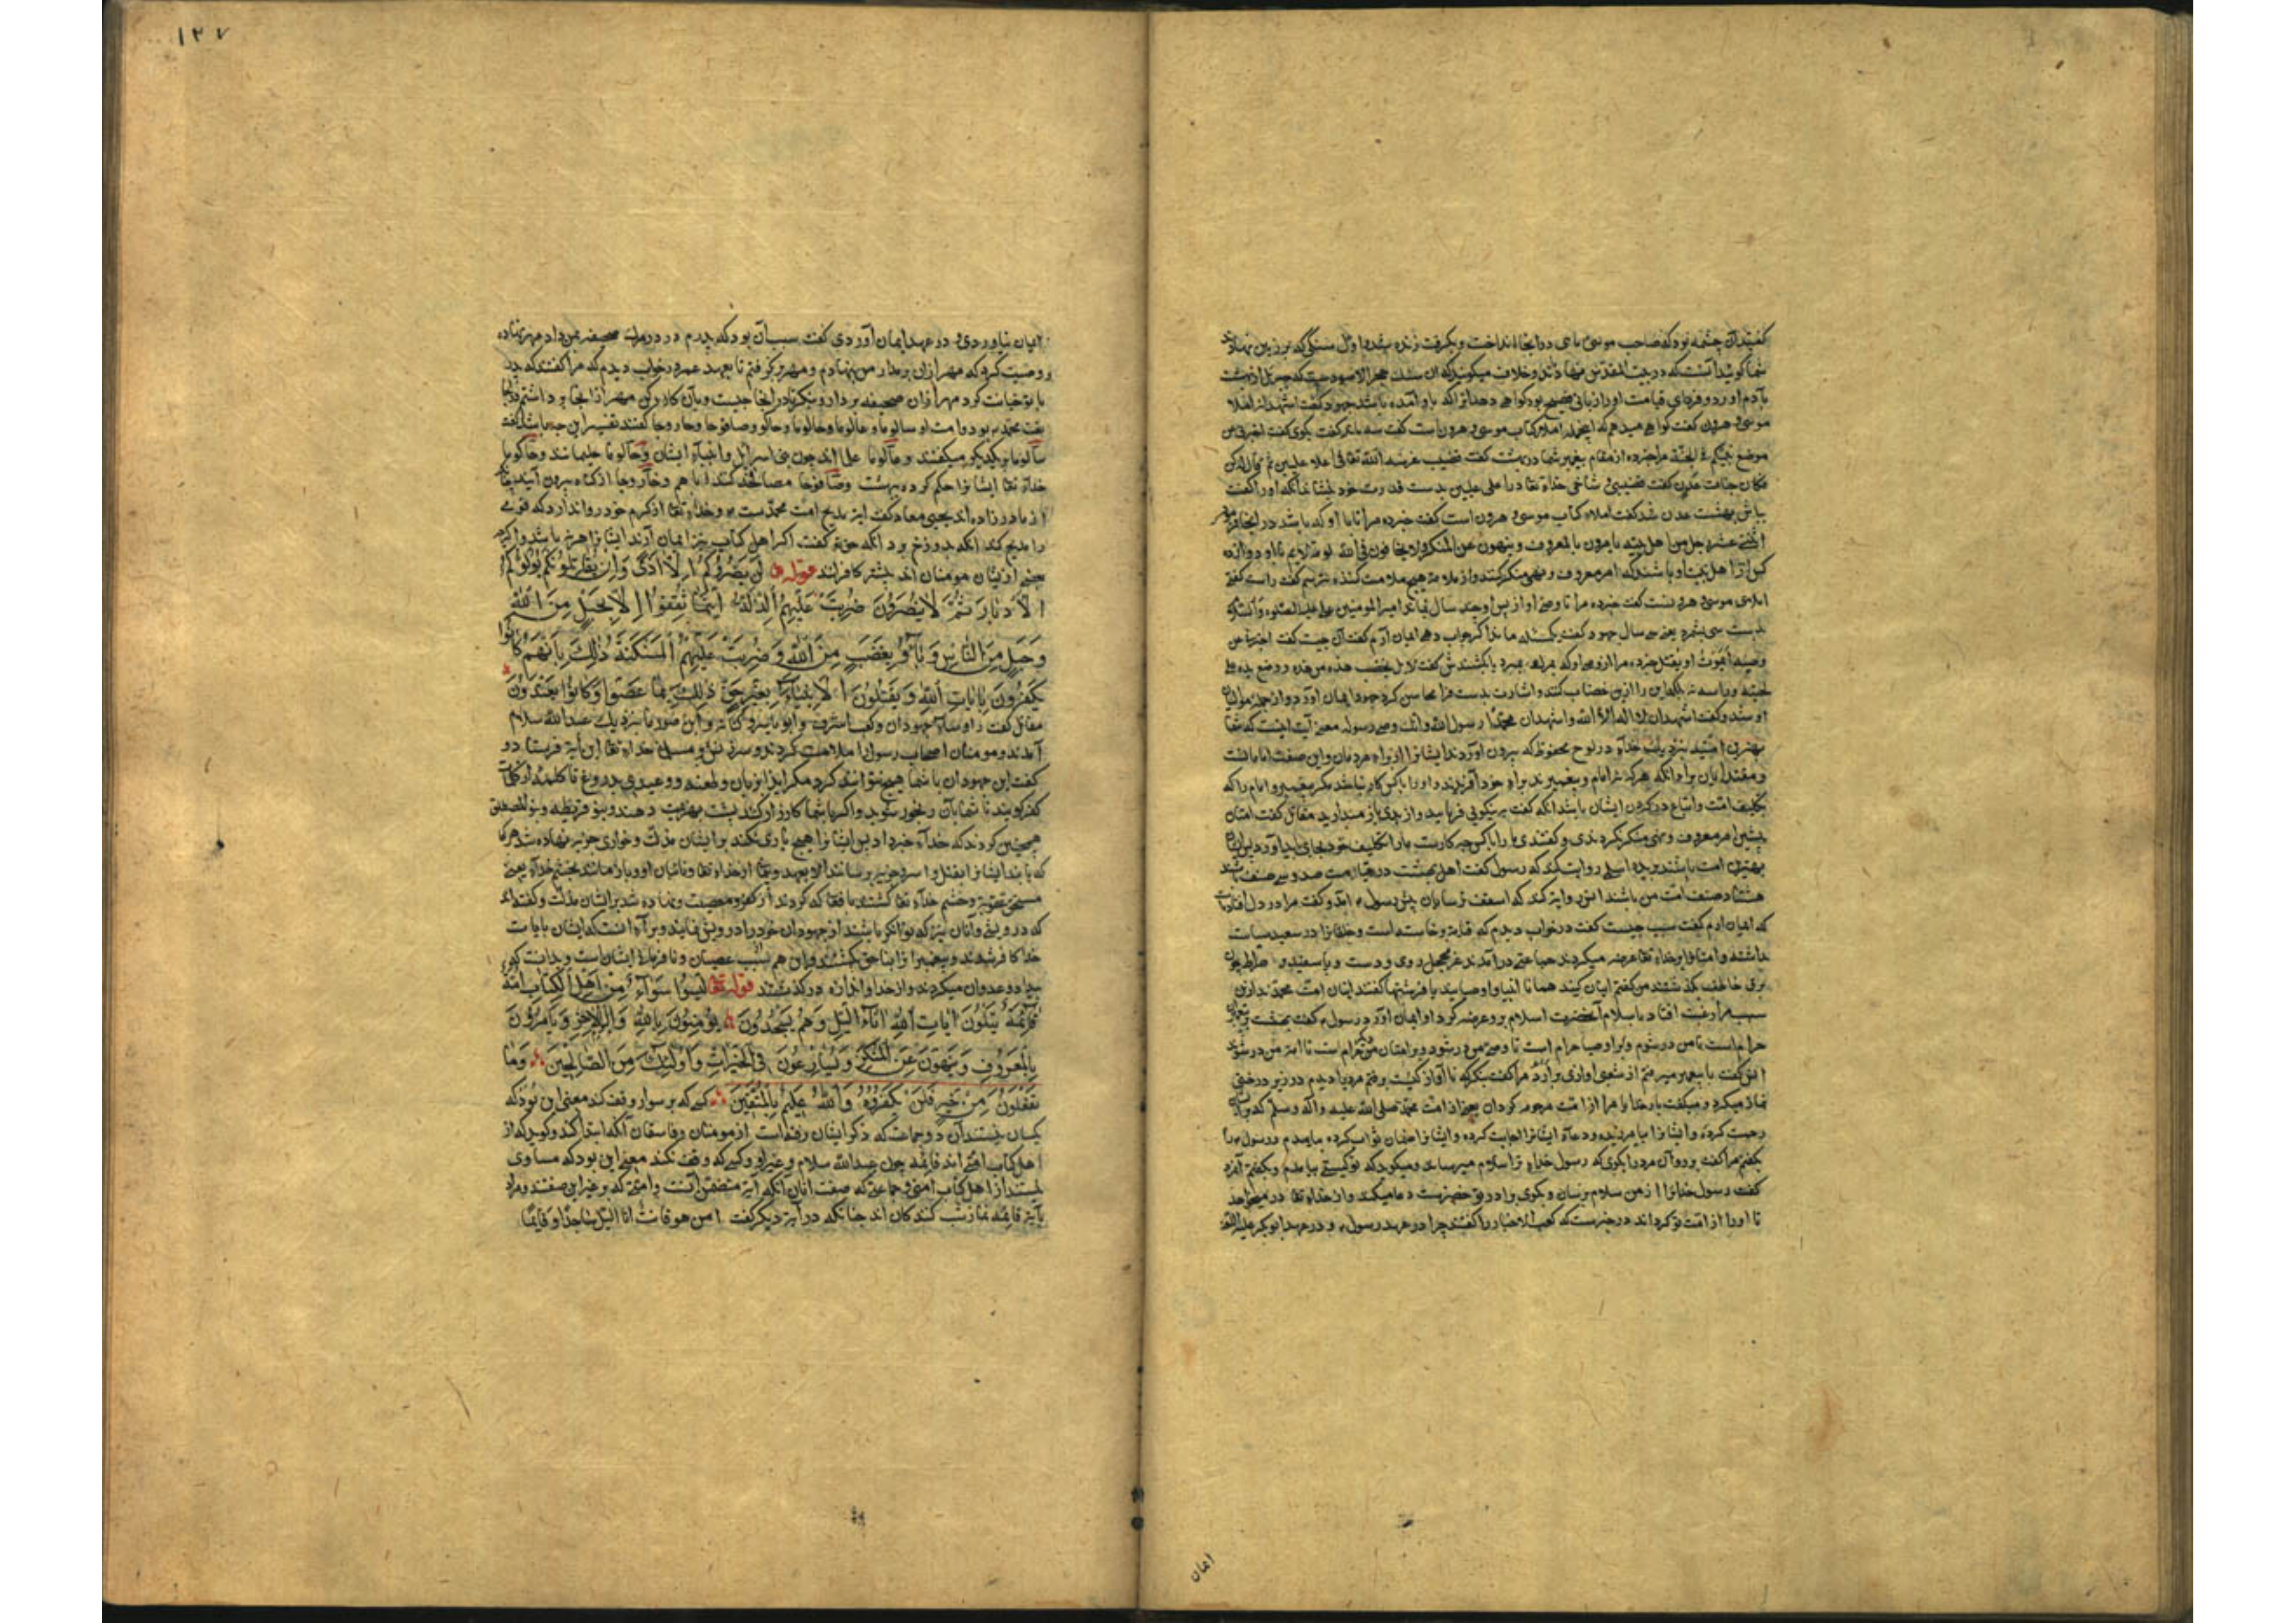 کفتند آن چشمه بود که صاحب موسی ماهی در آنجا انداخت و بکرفت زنده شد و اول سنکی که بر زمین نهادند
شما کویید آنست که در بیت المقدس نهاده‌اند و خلاف میکویید که آن سنک حجر الاسودست که جبریل از بهشت
بآدم آورد و فردای قیامت او را زبانی فصیح بود کواهی دهد آنرا که باو آمده باشد جهود کفت اشهد انه املاء
موسی و هرون کفت کواهی میدهم که این در املاء کتاب موسی و هرون است کفت سه دیکر کفت بکوی کفت اخبرنی عن
موضع نبیکم فی الجنة مرا خبر ده از مقام پیغمبر شما در بهشت کفت قضیب غرسه الله تعالی فی اعلا علیین ثم قال له کن
فکان جنات عدن کفت قضیبی و شاخی خدای تعالی در اعلی علیین بدست قدرت خود بنشاند آنکه او را کفت
بباش بهشت عدن شد کفت املاء کتاب موسی و هرون است کفت خبر ده مرا تا با او که باشد در آنجا
اثنی عشر رجل من اهل بیته یامرون بالمعروف و ینهون عن المنکر و لا یخافون فی الله لومة لائم با او دوازده
کس از اهل بیت او باشند که امر معروف و نهی منکر کنند و از ملامت هیچ ملامت کننده نترسند کفت راست کفتی
املای موسی و هرونست کفت خبر ده مرا تا وصی او از پس او چند سال بماند امیر المومنین علی علیه الصلوة و السلام
بدست سی بشمرد یعنی سی سال جهود کفت یک مسئله ماند اکر جواب دهی ایمان آرم کفت آن چیست کفت اخبرنی عن
وصیه أیموت او یقتل خبر ده مرا از وصی او که بمرک بمیرد یا بکشندش کفت لا بل یخضب هذه من هذه و وضع یده علی
لحیته و راسه نه بلکه این را ازین خضاب کنند و اشارت بدست فرا محاسن کرد جهود ایمان آورد و از جمله موالیان
او شد و کفت اشهد ان لا اله الا الله و اشهد ان محمدا رسول الله و انک وصی رسوله معنی آیت اینست که شما
بهترین امتید نزدیک خدای در لوح محفوظ که بیرون آوردند ایشانرا از برای مردمان و این صفت امامانست
و مقتدایان برای آنکه هر که نه امام و پیغمبرند برای خود آفریدند و او را با کس کار نباشد مکر پیغمبر و امام را که
تکلیف امت و اتباع در کردن ایشان باشد آنکه کفت به نیکویی فرمایید و از بدی باز میدارید مقاتل کفت امتان
پیشین امر معروف و نهی منکر نکردندی و کفتندی ما را با کس چه کارست ما را تکلیف خود بجای باید آورد پس این
بهترین امت باشند بریده اسلمی روایت کند که رسول کفت اهل بهشت در قیامت صد و بیست صنف باشند
هشتاد صنف امت من باشند انس روایة کند که اسقف ترسایان پیش رسول آمد و کفت مرا در دل افتاد
که ایمان آرم کفت سبب چیست کفت در خواب دیدم که قیامة برخاسته است و خلقانرا در صعید سیاست
داشته و امتانرا بر خدای تعالی عرضه میکردند جماعتی درآمدند غر محجل روی و دست و پا سفید و بر صراط چون
برق خاطف بکذشتند من کفتم اینان کیند همانا انبیا و اوصیایند یا فرشتها کفتند اینان امت محمدند ازین
سبب مرا رغبت افتاد باسلام آنحضرت اسلام برو عرضه کرد او ایمان آورد رسول کفت بهشت بر پیغمبران
حرام است تا من درشوم و بر اوصیا حرام است تا وصی من درشود و بر امتان حرام است تا امت من درشوند
انس کفت با پیغمبر میرفتم از شعبی آوازی برآمد مرا کفت بنکر که تا آواز کیست برفتم مردی را دیدم در زیر درختی
نماز میکرد و میکفت بار خدایا مرا از امت مرحومه کردان یعنی از امت محمد صلی الله علیه و آله و سلم که بر ایشان
رحمت کرده و ایشانرا بیامرزیده و دعای ایشانرا اجابت کرده و ایشانرا چندان ثواب کرده بیامدم و رسول را
بکفتم مرا کفت برو و آن مرد را بکوی که رسول خدای ترا سلام میرساند و میکوید که تو کیستی بیامدم و بکفتم آن مرد
کفت رسول خدایرا از من سلام برسان و بکوی برادر تو خضرست دعا میکند و از خدای تعالی در میخواهد
تا او را از امت تو کرداند در خبرست که کعب الاحبار را کفتند چرا در عهد رسول و در عهد ابو بکر
ایمان
۱۲۷
ایمان نیاوردی و در عهد ایمان آوردی کفت سبب آن بود که پدرم در وقت مرک صحیفه بمن داد مهر نهاده
و وصیت کرد که مهر ازان برمدار من بنهادم و مهر برنکرفتم تا بعهد عمر در خواب دیدم که مرا کفتند که پدر
با تو خیانت کرد مهر ازان صحیفه بردار و بنکر تا در آنجا چیست و بآن کار کن مهر از آنجا برداشتم در آنجا
نعت محمد بود و امت او سالوما و عالوما و حالوما و حاکوما و صافوحا و خاروجا کفتند تفسیر این چه باشد کفت
سالوما بریکدیکر میکفتند و عالوما علمااند چون بنی اسرائیل و انبیاء ایشان و حالوما حلیمانند و حاکوما
خدای تعالی ایشانرا حکم کرده ببهشت و صافوحا مصافحه کنند با هم و خاروجا از کناه بیرون آیند چنانکه
از مادر زاده‌اند یحیی معاد کفت این مدیح امت محمدست و خدای تعالی از کرم خود روا ندارد که قومی
را مدیح کند آنکه بدوزخ برد آنکه حق تعالی کفت اکر اهل کتاب نیز ایمان آرند ایشانرا بهتر باشد و اکر چه
بعضی ازیشان مومنان‌اند بیشتر کافرانند قوله تعالی لَن یَضُرُّوکُمْ إِلَّا أَذًى وَإِن یُقَاتِلُوکُمْ یُوَلُّوکُمُ
الْأَدْبَارَ ثُمَّ لَا یُنصَرُونَ ضُرِبَتْ عَلَیْهِمُ الذِّلَّةُ أَیْنَمَا ثُقِفُوا إِلَّا بِحَبْلٍ مِنَ اللَّهِ
وَحَبْلٍ مِنَ النَّاسِ وَبَاؤُ بِغَضَبٍ مِنَ اللَّهِ وَضُرِبَتْ عَلَیْهِمُ الْمَسْکَنَةُ ذَلِکَ بِأَنَّهُمْ کَانُوا
یَکْفُرُونَ بِآیَاتِ اللَّهِ وَیَقْتُلُونَ الْأَنبِیَاءَ بِغَیْرِ حَقٍّ ذَلِکَ بِمَا عَصَوْا وَکَانُوا یَعْتَدُونَ
مقاتل کفت روساء جهودان و کعب اشرف و ابو یاسر و کنانه و ابن صوریا بنزدیک عبد الله سلام
آمدند و مومنان اصحاب رسول را ملامت کردند و خدای تعالی این آیة فرستاد و
کفت این جهودان با شما هیچ نتوانند کرد مکر ایذا بزبان و طعنه و وعیدی بدروغ تا کلمه از کلمات
کفر کویند تا شما بآن رنجور شوید و اکر با شما کارزار کنند پشت بهزیمت دهند و بنو قریظه و بنو المصطلق
همچنین کردند که خدای خبر داد پس ایشانرا هیچ یاری نکند بر ایشان مذلت و خواری جزیه نهاده شد هر کجا
که یابند ایشانرا بقتل و اسر و جزیه برسانند الا بعهد و پیمان از خدای تعالی و نائبان او و باز ماندند بخشم خدای یعنی
مستحق عقوبة و خشم خدای تعالی کشتند بآنچه که کردند از کفر و معصیت و نهاده شد بر ایشان مذلت و کفته‌اند
که درویشی و آنان نیز که توانکر باشند از جهودان خود را درویش نمایند و برای آنست که ایشان بآیات
خدا کافر شدند و پیغمبرانرا بناحق بکشتند و این هم بسبب عصیان و نافرمانی ایشان است و بدانست که
بیداد و عدوان میکردند و از حد و اندازه درکذشتند قوله تعالی لَیْسُوا سَوَاءً مِنْ أَهْلِ الْکِتَابِ أُمَّةٌ
قَائِمَةٌ یَتْلُونَ آیَاتِ اللَّهِ آنَاءَ اللَّیْلِ وَهُمْ یَسْجُدُونَ یُؤْمِنُونَ بِاللَّهِ وَالْیَوْمِ الْآخِرِ وَیَأْمُرُونَ
بِالْمَعْرُوفِ وَیَنْهَوْنَ عَنِ الْمُنکَرِ وَیُسَارِعُونَ فِی الْخَیْرَاتِ وَأُولَئِکَ مِنَ الصَّالِحِینَ وَمَا
تَفْعَلُوا مِنْ خَیْرٍ فَلَنْ تُکْفَرُوهُ وَاللَّهُ عَلِیمٌ بِالْمُتَّقِینَ کسی که بر سواء وقف کند معنی این بود که
یکسان نیستند آن دو جماعت که ذکر ایشان رفته است از مومنان و فاسقان آنکه ابتدا کند و کوید که از
اهل کتاب امتی‌اند قائمه چون عبد الله سلام و غیر او و کسی که وقف نکند معنی این بود که مساوی
نیستند از اهل کتاب امتی و جماعتی که صفت آنان آنکه آیة متضمن آنست و امتی که بر غیر این صفتند و مراد
بآیة قائمه نماز شب کنندکان‌اند چنانکه در آیة دیکر کفت امن هو قانت آناء اللیل ساجدا و قایما